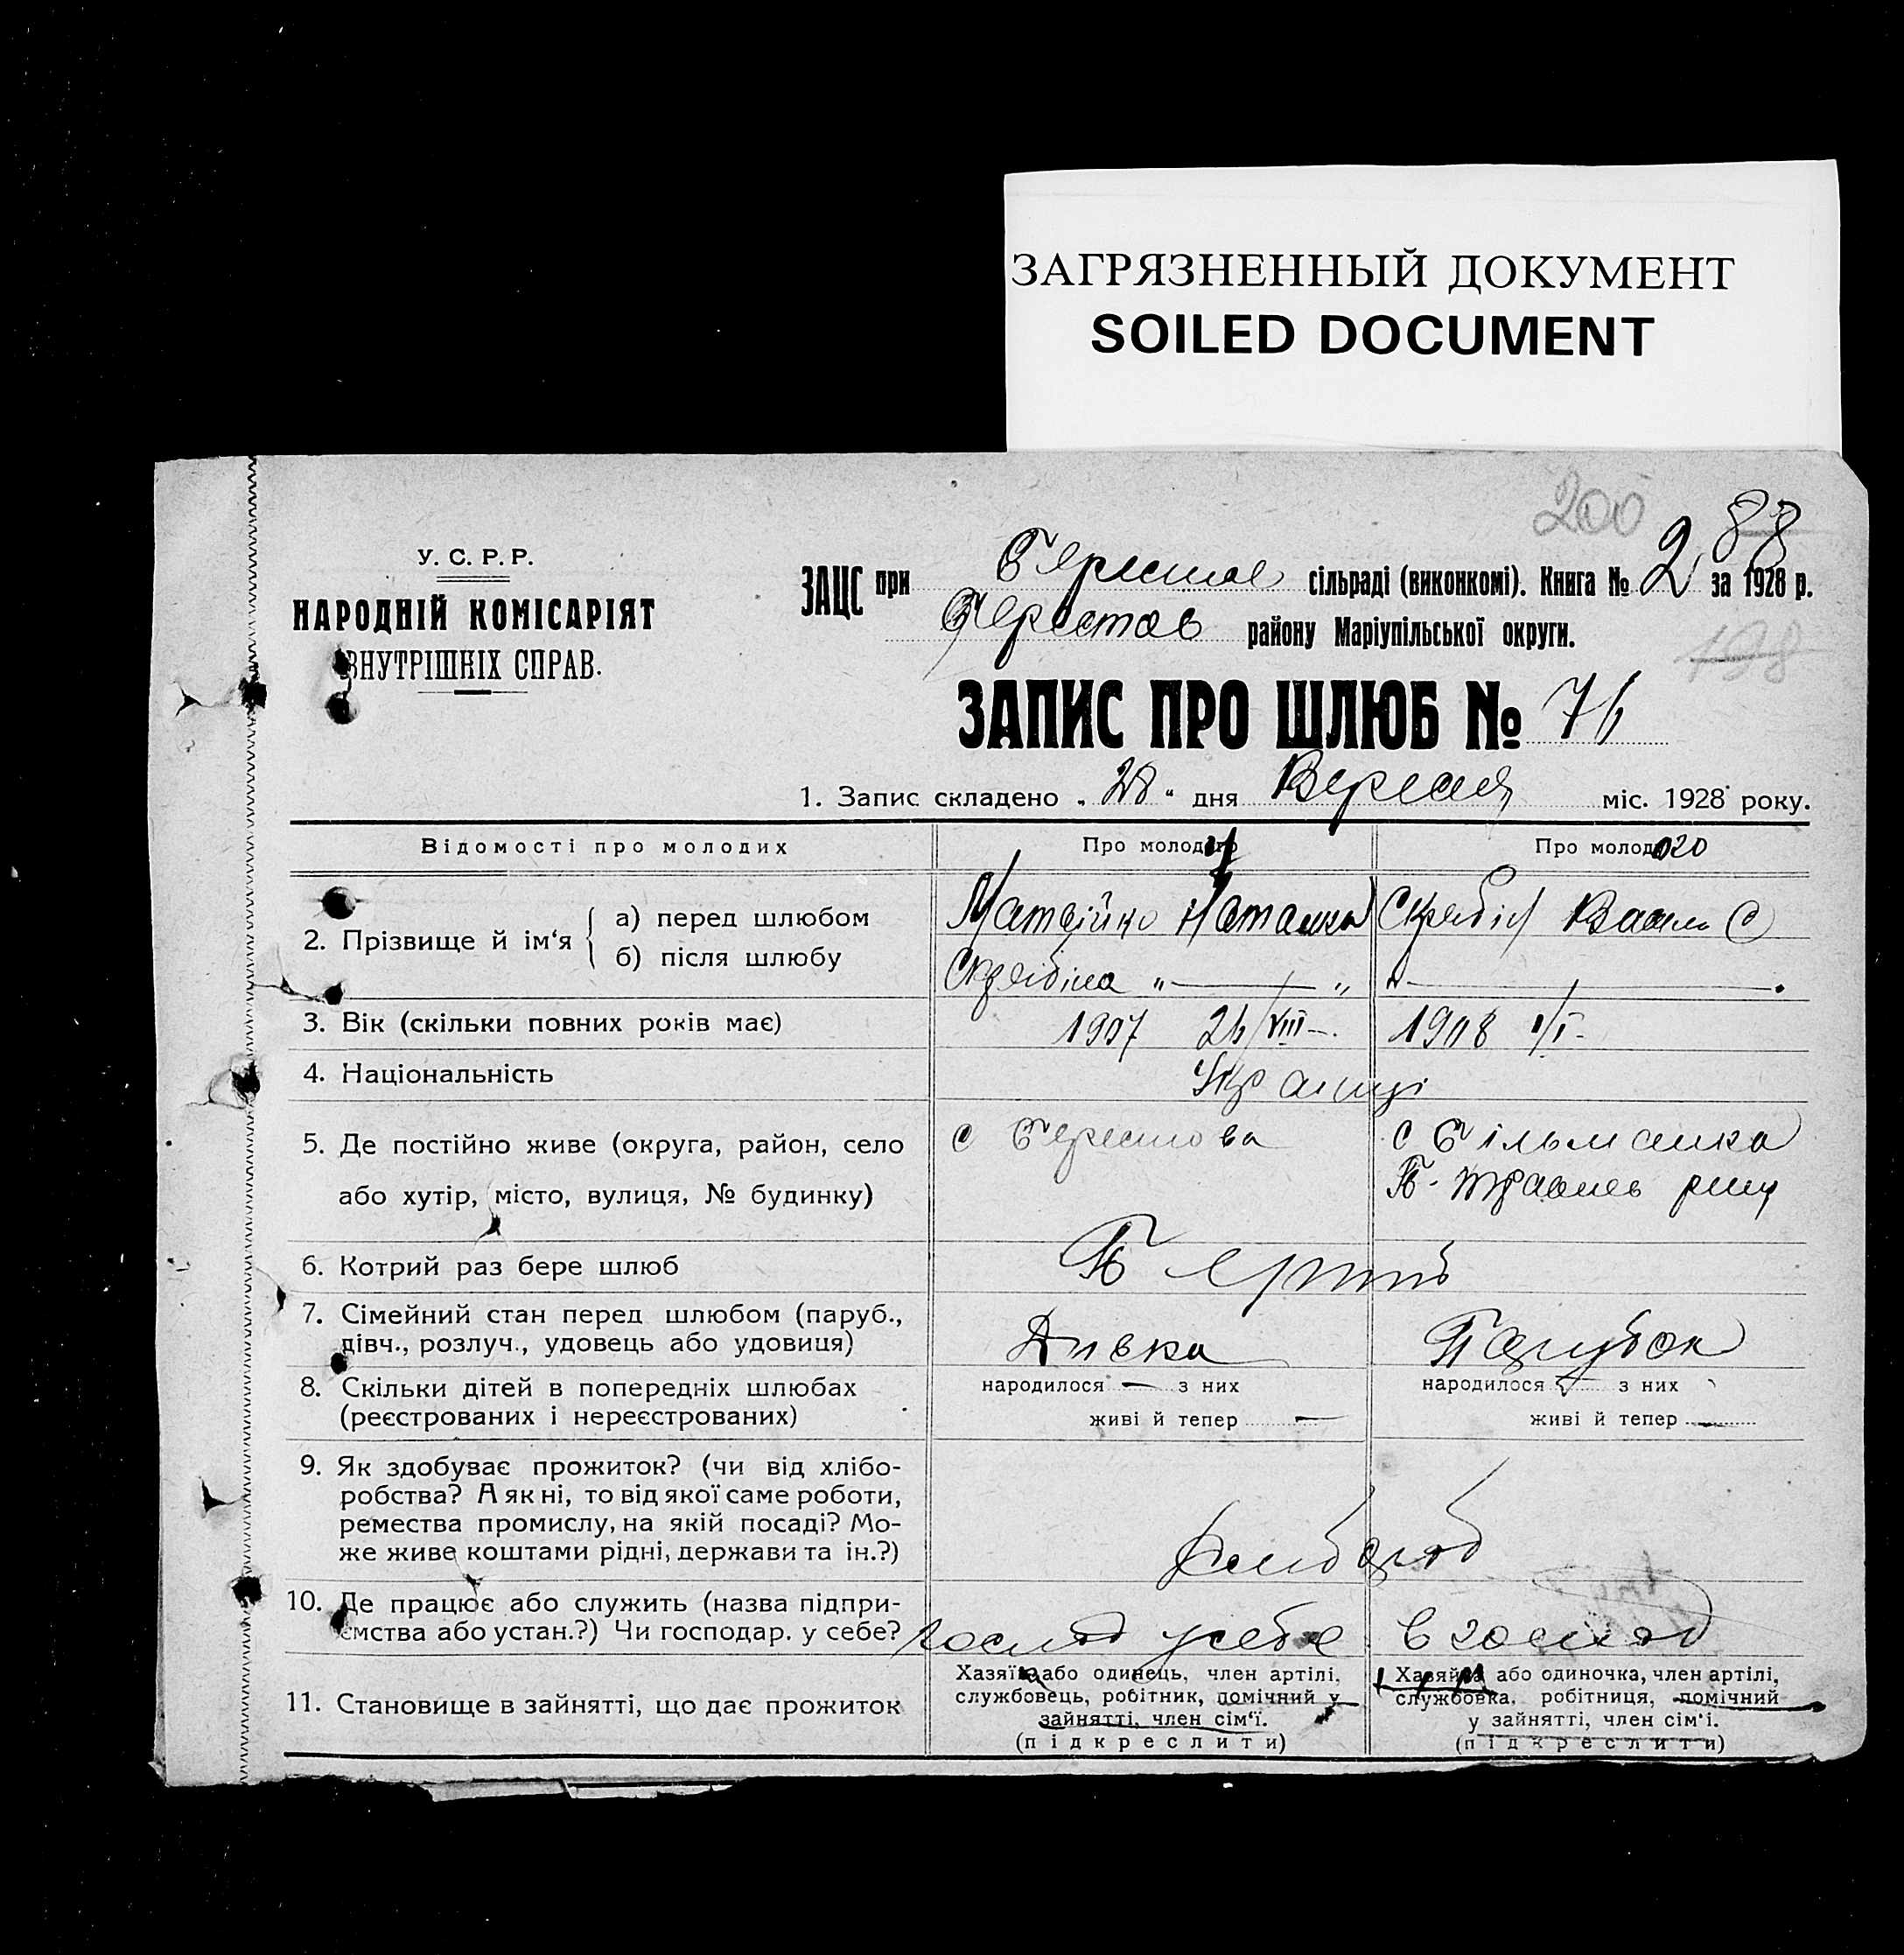 ЗАГРЯЗНЕННЫЙ ДОКУМЕНТ
SOILED DOCUMENT
200
88
У. С. Р. Р.
НАРОДНІЙ КОМІСАРІЯТ
ВНУТРІШНІХ СПРАВ.
ЗАЦС при Берестов сільраді (виконкомі). Книга № 2 за 1928 р.
Берестов району Маріупільської округи.
198
ЗАПИС ПРО ШЛЮБ № 76
1. Запис складено „ 28 “ дня Вересня міс. 1928 року.
Відомості про молодих
Про молод
Про молодого
2. Прізвище й ім'я { а) перед шлюбом
б) після шлюбу
Матвійко Наталка
Скребіл Василь С
Скребіла „ — „
„ —
3. Вік (скільки повних років має)
1907 26/VIII
1908 1/I
4. Національність
Українці
5. Де постійно живе (округа, район, село
або хутір, місто, вулиця, № будинку)
с Берестова
с Більманка
6. Котрий раз бере шлюб
7. Сімейний стан перед шлюбом (паруб.,
дівч., розлуч., удовець або удовиця)
Дивка
Парубок
8. Скільки дітей в попередніх шлюбах
(реєстрованих і нереєстрованих)
народилося — з них
живі й тепер —
народилося — з них
живі й тепер —
9. Як здобуває прожиток? (чи від хлібо-
робства? А як ні, то від якої саме роботи,
ремества промислу, на якій посаді? Мо-
же живе коштами рідні, держави та ін.?)
хлібороб
10. Де працює або служить (назва підпри-
ємства або устан.?) Чи господар. у себе?
господ у себе
в господ
11. Становище в зайнятті, що дає прожиток
Хазяїн або одинець, член артілі,
службовець, робітник, помічний у
зайнятті, член сім'ї.
(підкреслити)
Хазяйка або одиночка, член артілі,
службовка, робітниця, помічний
у зайнятті, член сім'ї.
(підкреслити)